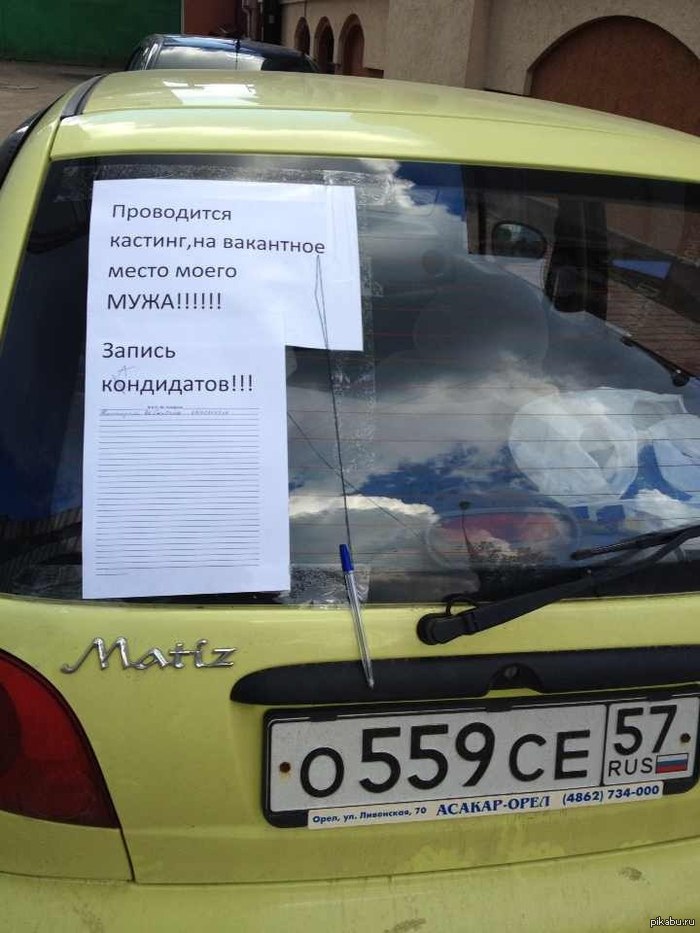 Проводится
кастинг,на вакантное
место моего
МУЖА!!!!!!
Запись
кондидатов!!!
Matiz
О559СЕ 57
RUS
Орел, ул. Ливенская, 70 АСАКАР-ОРЕЛ (4862) 734-000
pikabu.ru